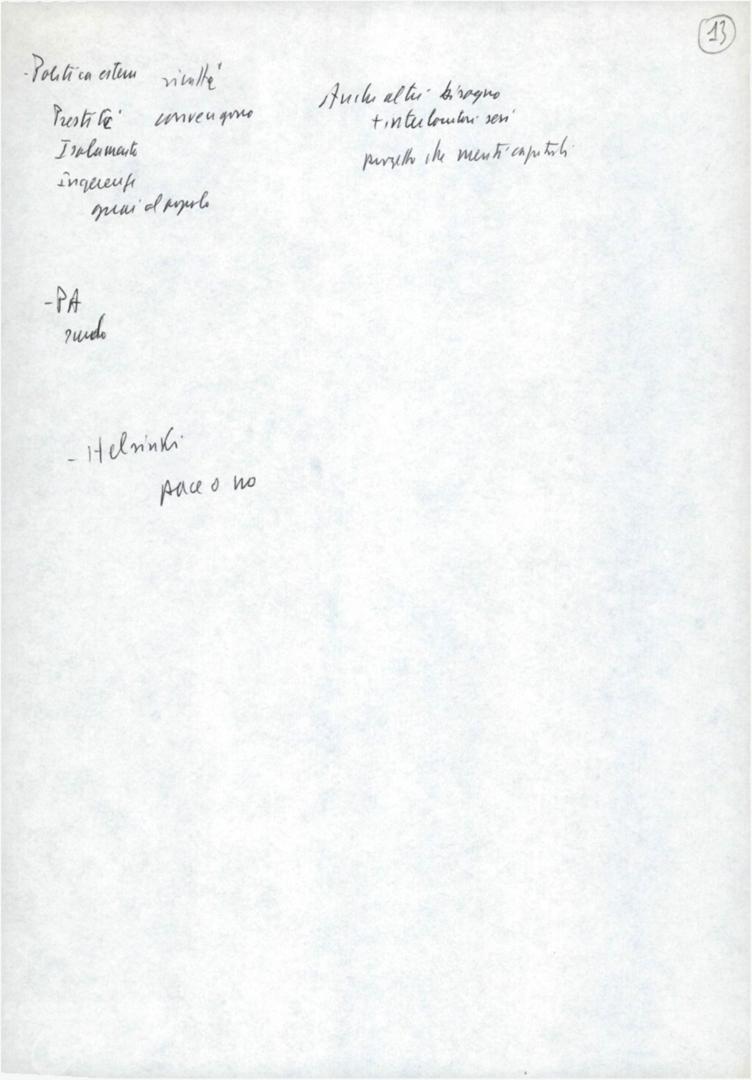 13
- Politica estera
Prestiti convengono
Isolamento
Ingerenze
guai al popolo
Anche altri bisogno
+ interlocutori seri
progetto che meriti capitoli
- PA
ruolo
- Helsinki
pace o no